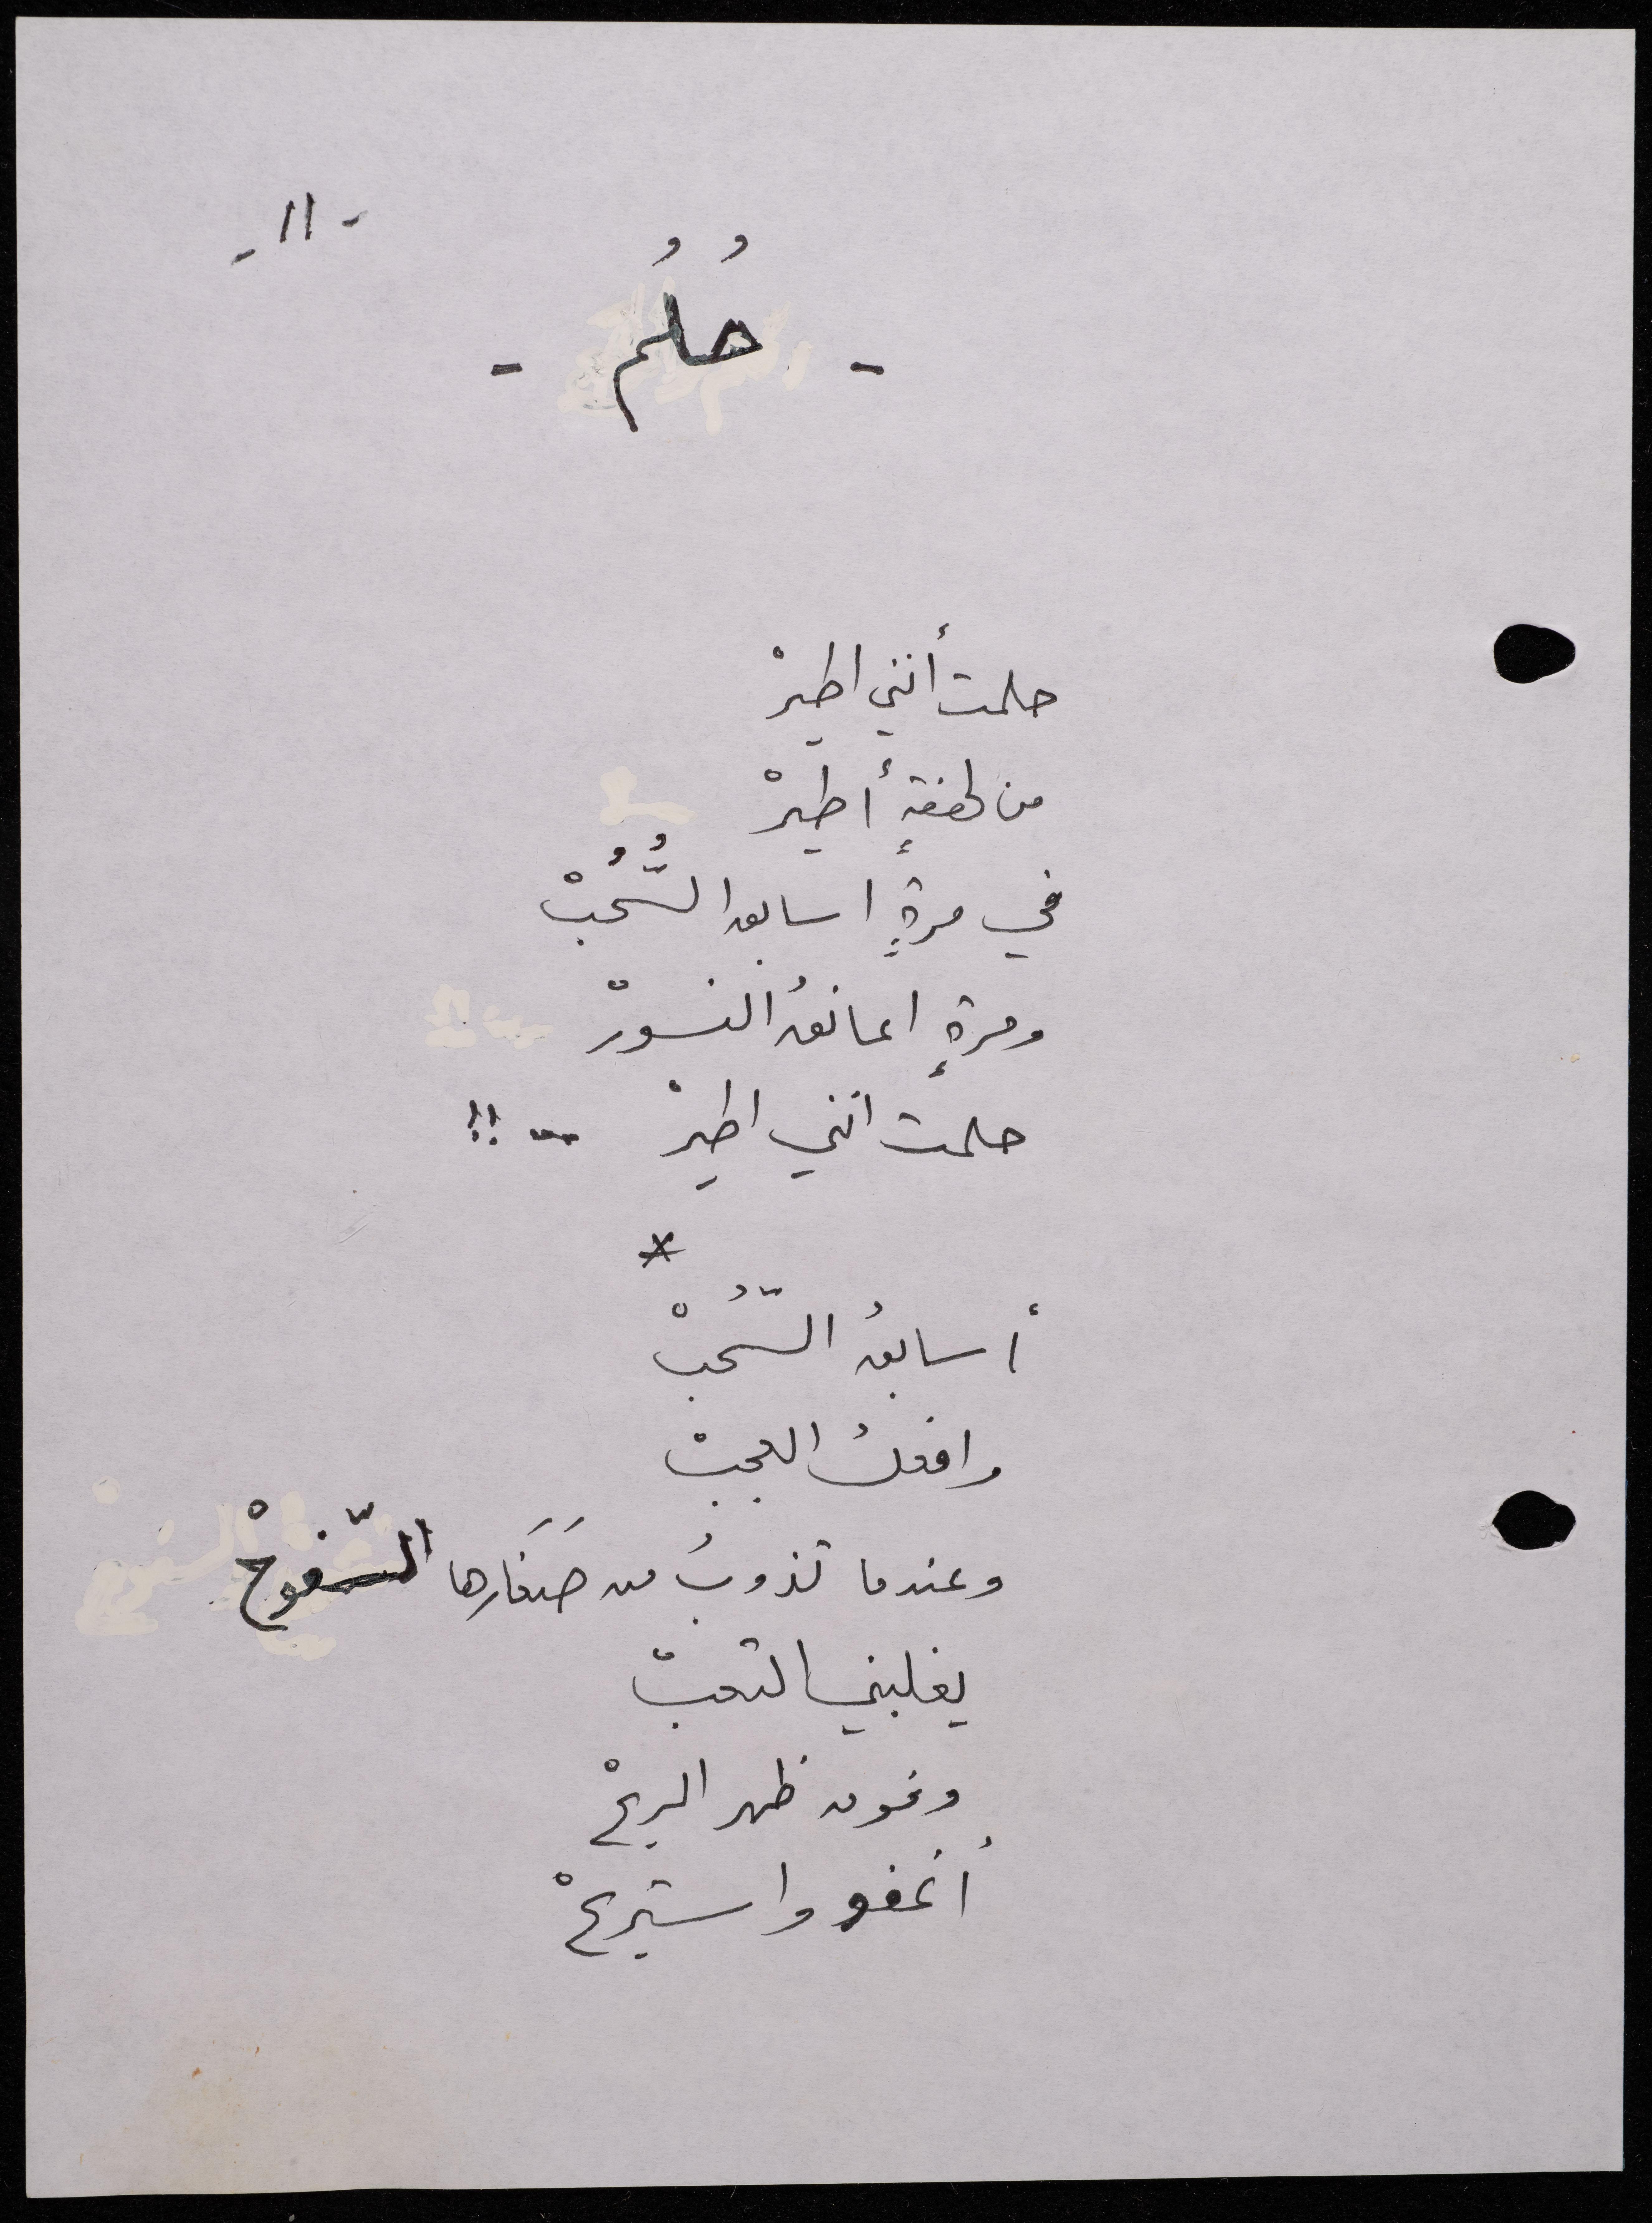 - 11 -
- حُلُم -
حلمت أنني اطيرْ
من لهفةٍ أطيرْ
في مرةٍ اسابق السُّحُبْ
ومرةٍ اعانقُ النسورْ
حلمت انني اطيرْ ... !!
*
أسابقُ السُّحبْ
وافعلُ العجبْ
وعندما تذوبُ من صَغَارها السّفوحْ
يغلبني التعبْ
وفوق ظهر الريحْ
أغفو واستريحْ